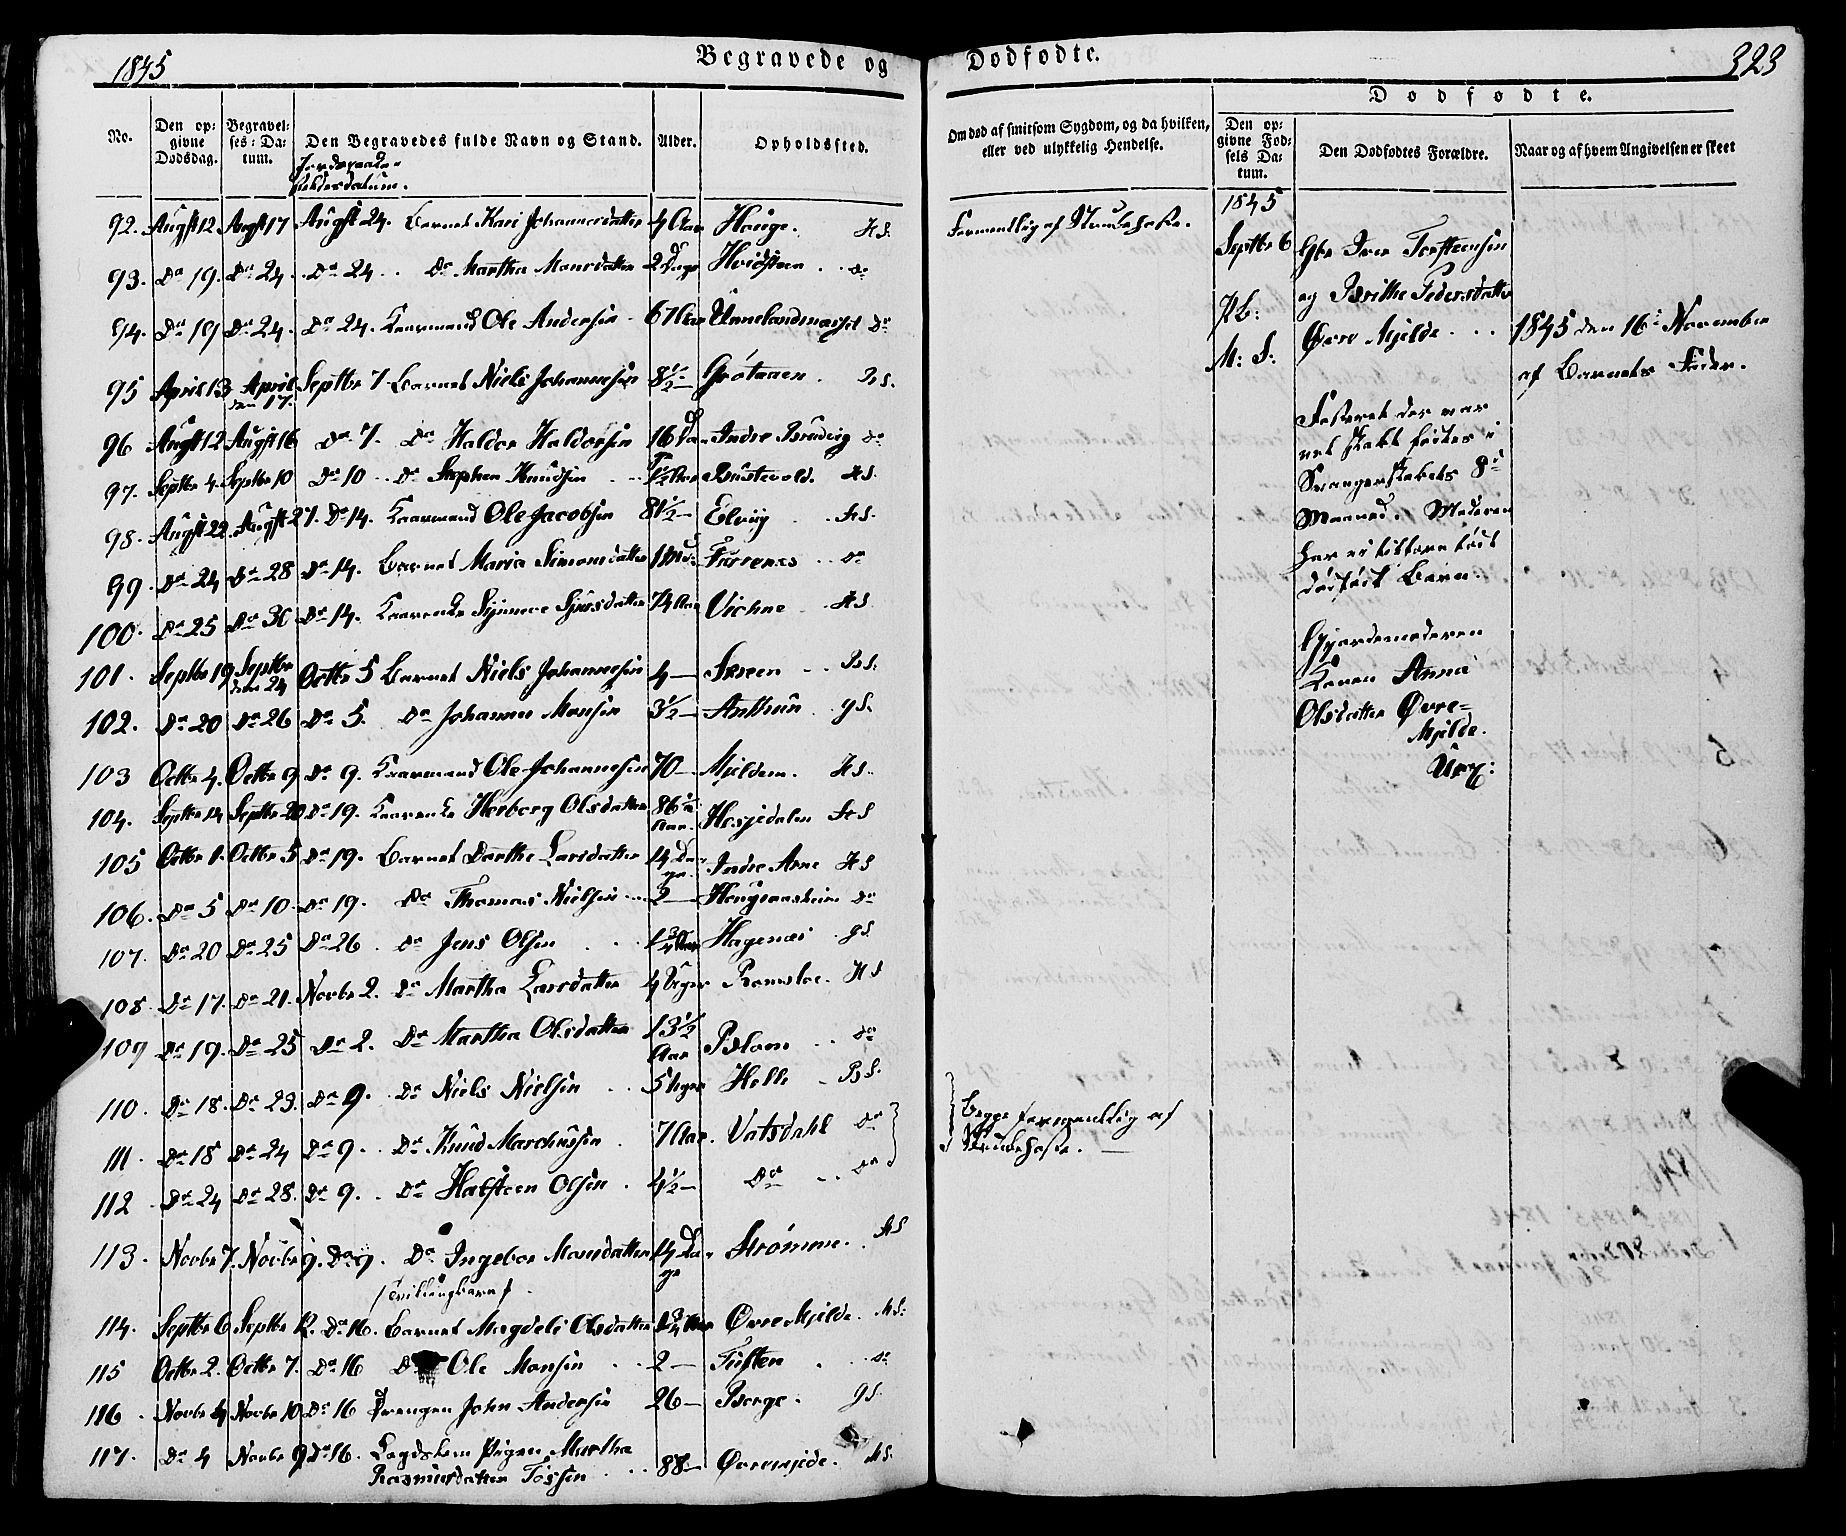 1845
Begravede og Dødfødte.
323
No.
Den opgivne Dødsdag.
Begravelses-Datum.
Den Begravedes fulde Navn og Stand.
Alder.
Opholdssted.
Om død af smitsom Sygdom, og da hvilken, eller ved ulykkelig Hendelse.
Dødfødte.
Den opgivne Fødsels Datum.
Den Dødfødtes Forældre.
Naar og af hvem Angivelsen er skeet
Jordpaakastelsesdatum.
92. Augst 12 Augst 17 Augst 24. Barnet Kari Johannesdatter 4 Aar Hauge. HS.
93. Do 19. Do 24 Do 24 Do Martha Monsdatter 2 Dage Hvidsteen Do
94. Do 19 Do 24. Do 24. Kaarmand Ole Andersen 67 Aar Do
95 April 13 April den 17. Septbr 7 Barnet Niels Johannesen 8 1/2 Grøtaaen. BS.
96 Augst 12 Augst 16 Do 7. Do Haldor Haldorsen 16 Da Indre Bruvig Do
97. Septbr 4. Septbr 10 Do 10 Do Stephen Knudsen HS.
98. Augst 22 Augst 27. Do 14. Kaarmand Ole Jacobsen 81 1/2 Elvig HS.
99. Do 24 Do 28 Do 14. Barnet Maria Simonsdatter Furrenes Do
100. Do 25 Do 30 Do 14. Kaarenke Synneve Sjursdatter 74 Aar Vichne HS
101. Septbr 19. Septbr den 24 Octbr 5 Barnet Niels Johannesen 4 BS.
102. Do 20 Do 26 Do 5. Do Johannes Monsen 3 1/2 gS.
103 Octbr 4. Octbr 9 Do 9. Kaarmand Ole Johannesen 70 Mjeldem. HS.
104. Septbr 14 Septbr 20 Do 19. Kaarenke Herborg Olsdatter 86 1/2 Aar. Hesjedalen HS
105 Octbr 1. Octbr 5 Do 19. Barnet Dorthe Larsdatter 14 Dage. Indre Arne HS
106. Do 5 Do 10. Do 19. Do Thomas Nielsen 2 Do
107. Do 20 Do 25 Do 26 Do Jens Olsen 1 3/4 Aar Hagenæs gS.
108 Do 17. Do 21. Novbr 2. Do Martha Larsdatter 4 Uger Romsloe. HS
109 Do 19. Do 25 Do 2. Do Martha Olsdatter 13 1/2 Aar Blom Do
110. Do 18. Do 23. Do 9. Do Niels Nielsen 5 Uger Helle BS.
111. Do 18 Do 24 Do 9. Do Knud Marchussen 7 Aar. Vatsdahl Do
112 Do 24 Do 28. Do 9. Do Halsteen Olsen 4 1/2 Do Do
113. Novbr 7. Novbr 9. Do 9. Do Ingebor Monsdatter 14 Dage Strømme. HS
(Tvillingbarn).
114. Septbr 6 Septbr 12. Do 16. Barnet Magdeli Olsdatter 1 3/4 Aar Øvre Mjelde. MS.
115 Octbr 2. Octbr 7. Do 16 Do Ole Monsen 2 Tuften Do
116. Novbr 4 Novbr 10 Do 16 Drengen John Andersen 26 Borge. gS.
117. Do 4 Novbr 9 Do 16. Lægdslem Pigen Martha Rasmusdatter Tøssen 88 Øvremjelde. MS.
Formentlig af Strubehoste.
Begge formentlig af Strubehoste.
1845
Septbr 6
M: S:
Gbr Iver Torsteensen
og Brithe Pedersdatter
Øvre Mjelde
1845 den 16de November
af Barnets Fader.
Fosteret der var
Svangerskabets 8de
Maaned. Moderen
har ei tillforn født
dødfødt Barn.
Gjordemoderen
Konen Anna
Olsdatter Øvre-
Mjelde.